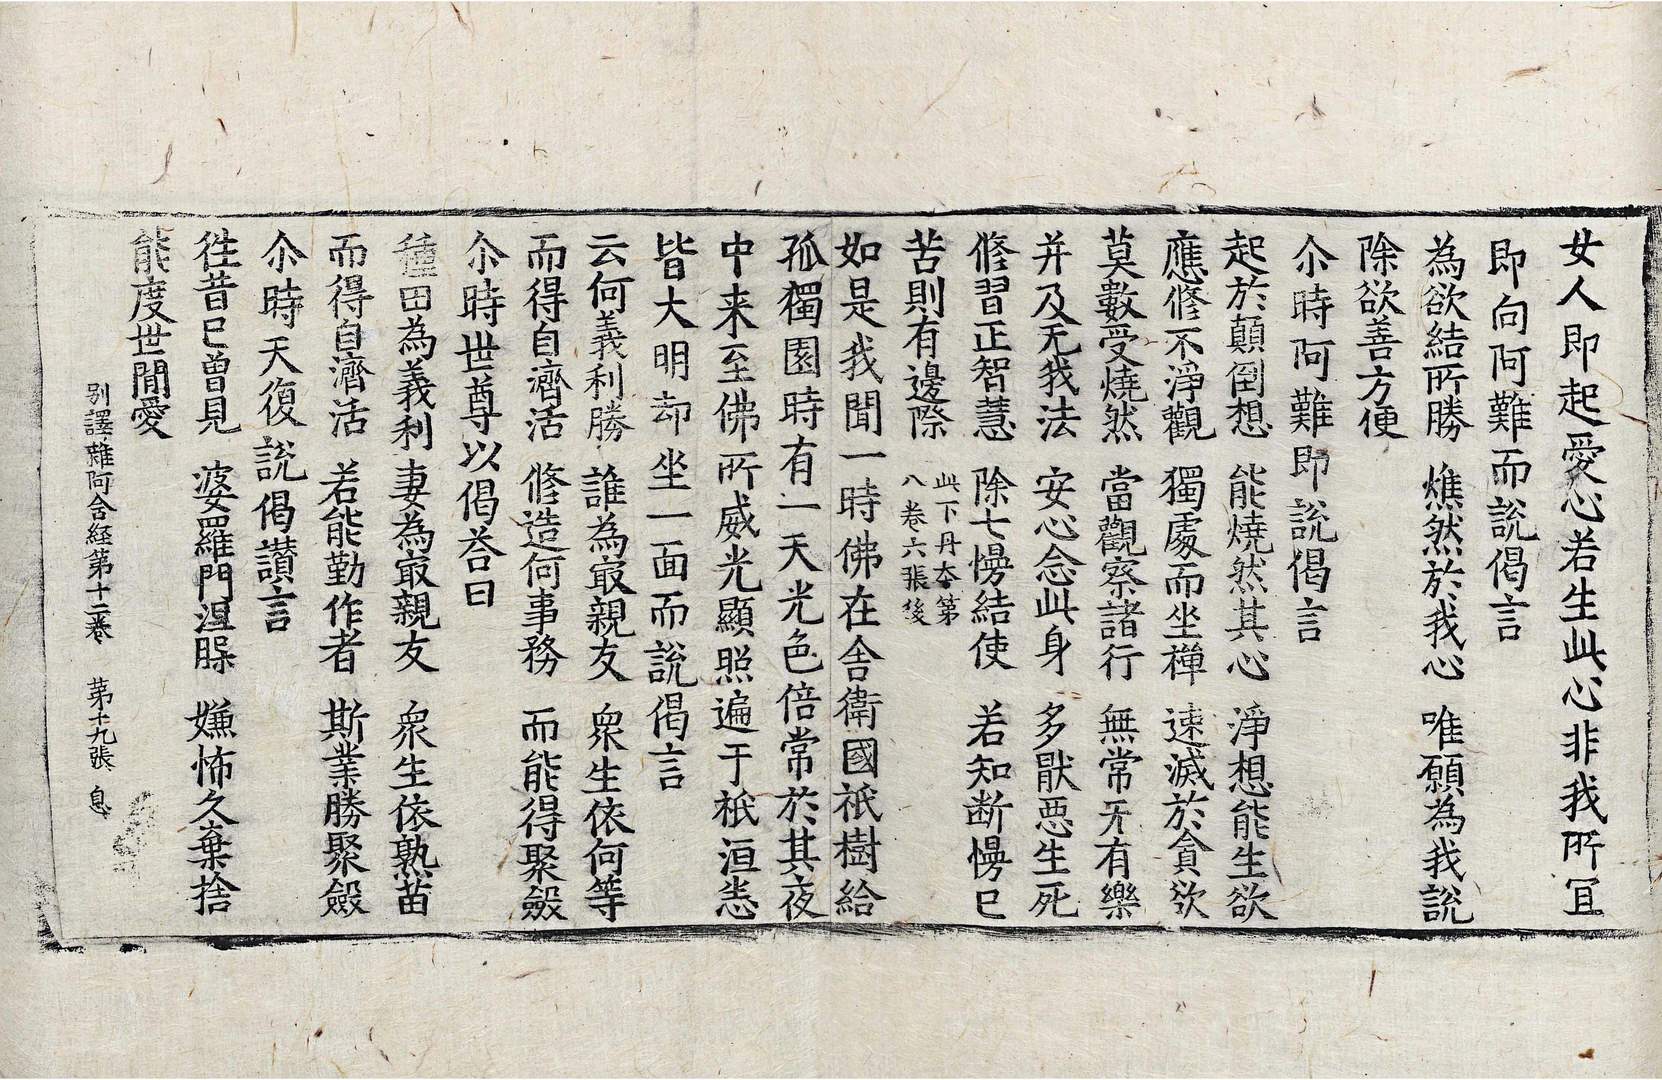 女人即起愛心若生此心非我所冝
即向阿難而說偈言
為欲結所勝　燋然於我心　唯願為我說
除欲善方便
尒時阿難即說偈言
起於顛倒想　能燒然其心　淨想能生欲
應修不淨觀　獨處而坐禪　速滅於貪欲
莫數受燒然　當觀察諸行　無常无有樂
并及无我法　安心念此身　多猒惡生死
修習正智慧　除七慢結使　若知断慢已
苦則有邊際　此下丹本第
八卷六張後
如是我聞一時佛在舍衛國祇樹給
孤獨園時有一天光色倍常於其夜
中来至佛所威光顯照遍于祇洹悉
皆大明却坐一面而說偈言
云何義利勝　誰為㝡親友　衆生依何等
而得自濟活　修造何事務　而能得聚斂
尒時世尊以偈荅曰
種田為義利　妻為㝡親友　衆生依熟苗
而得自濟活　若能勤作者　斯業勝聚斂
尒時天復說偈讚言
徃昔已曾見　婆羅門涅槃　嫌怖久棄捨
能度世間愛
别譯雜阿含経第十二卷　苐十九張　息